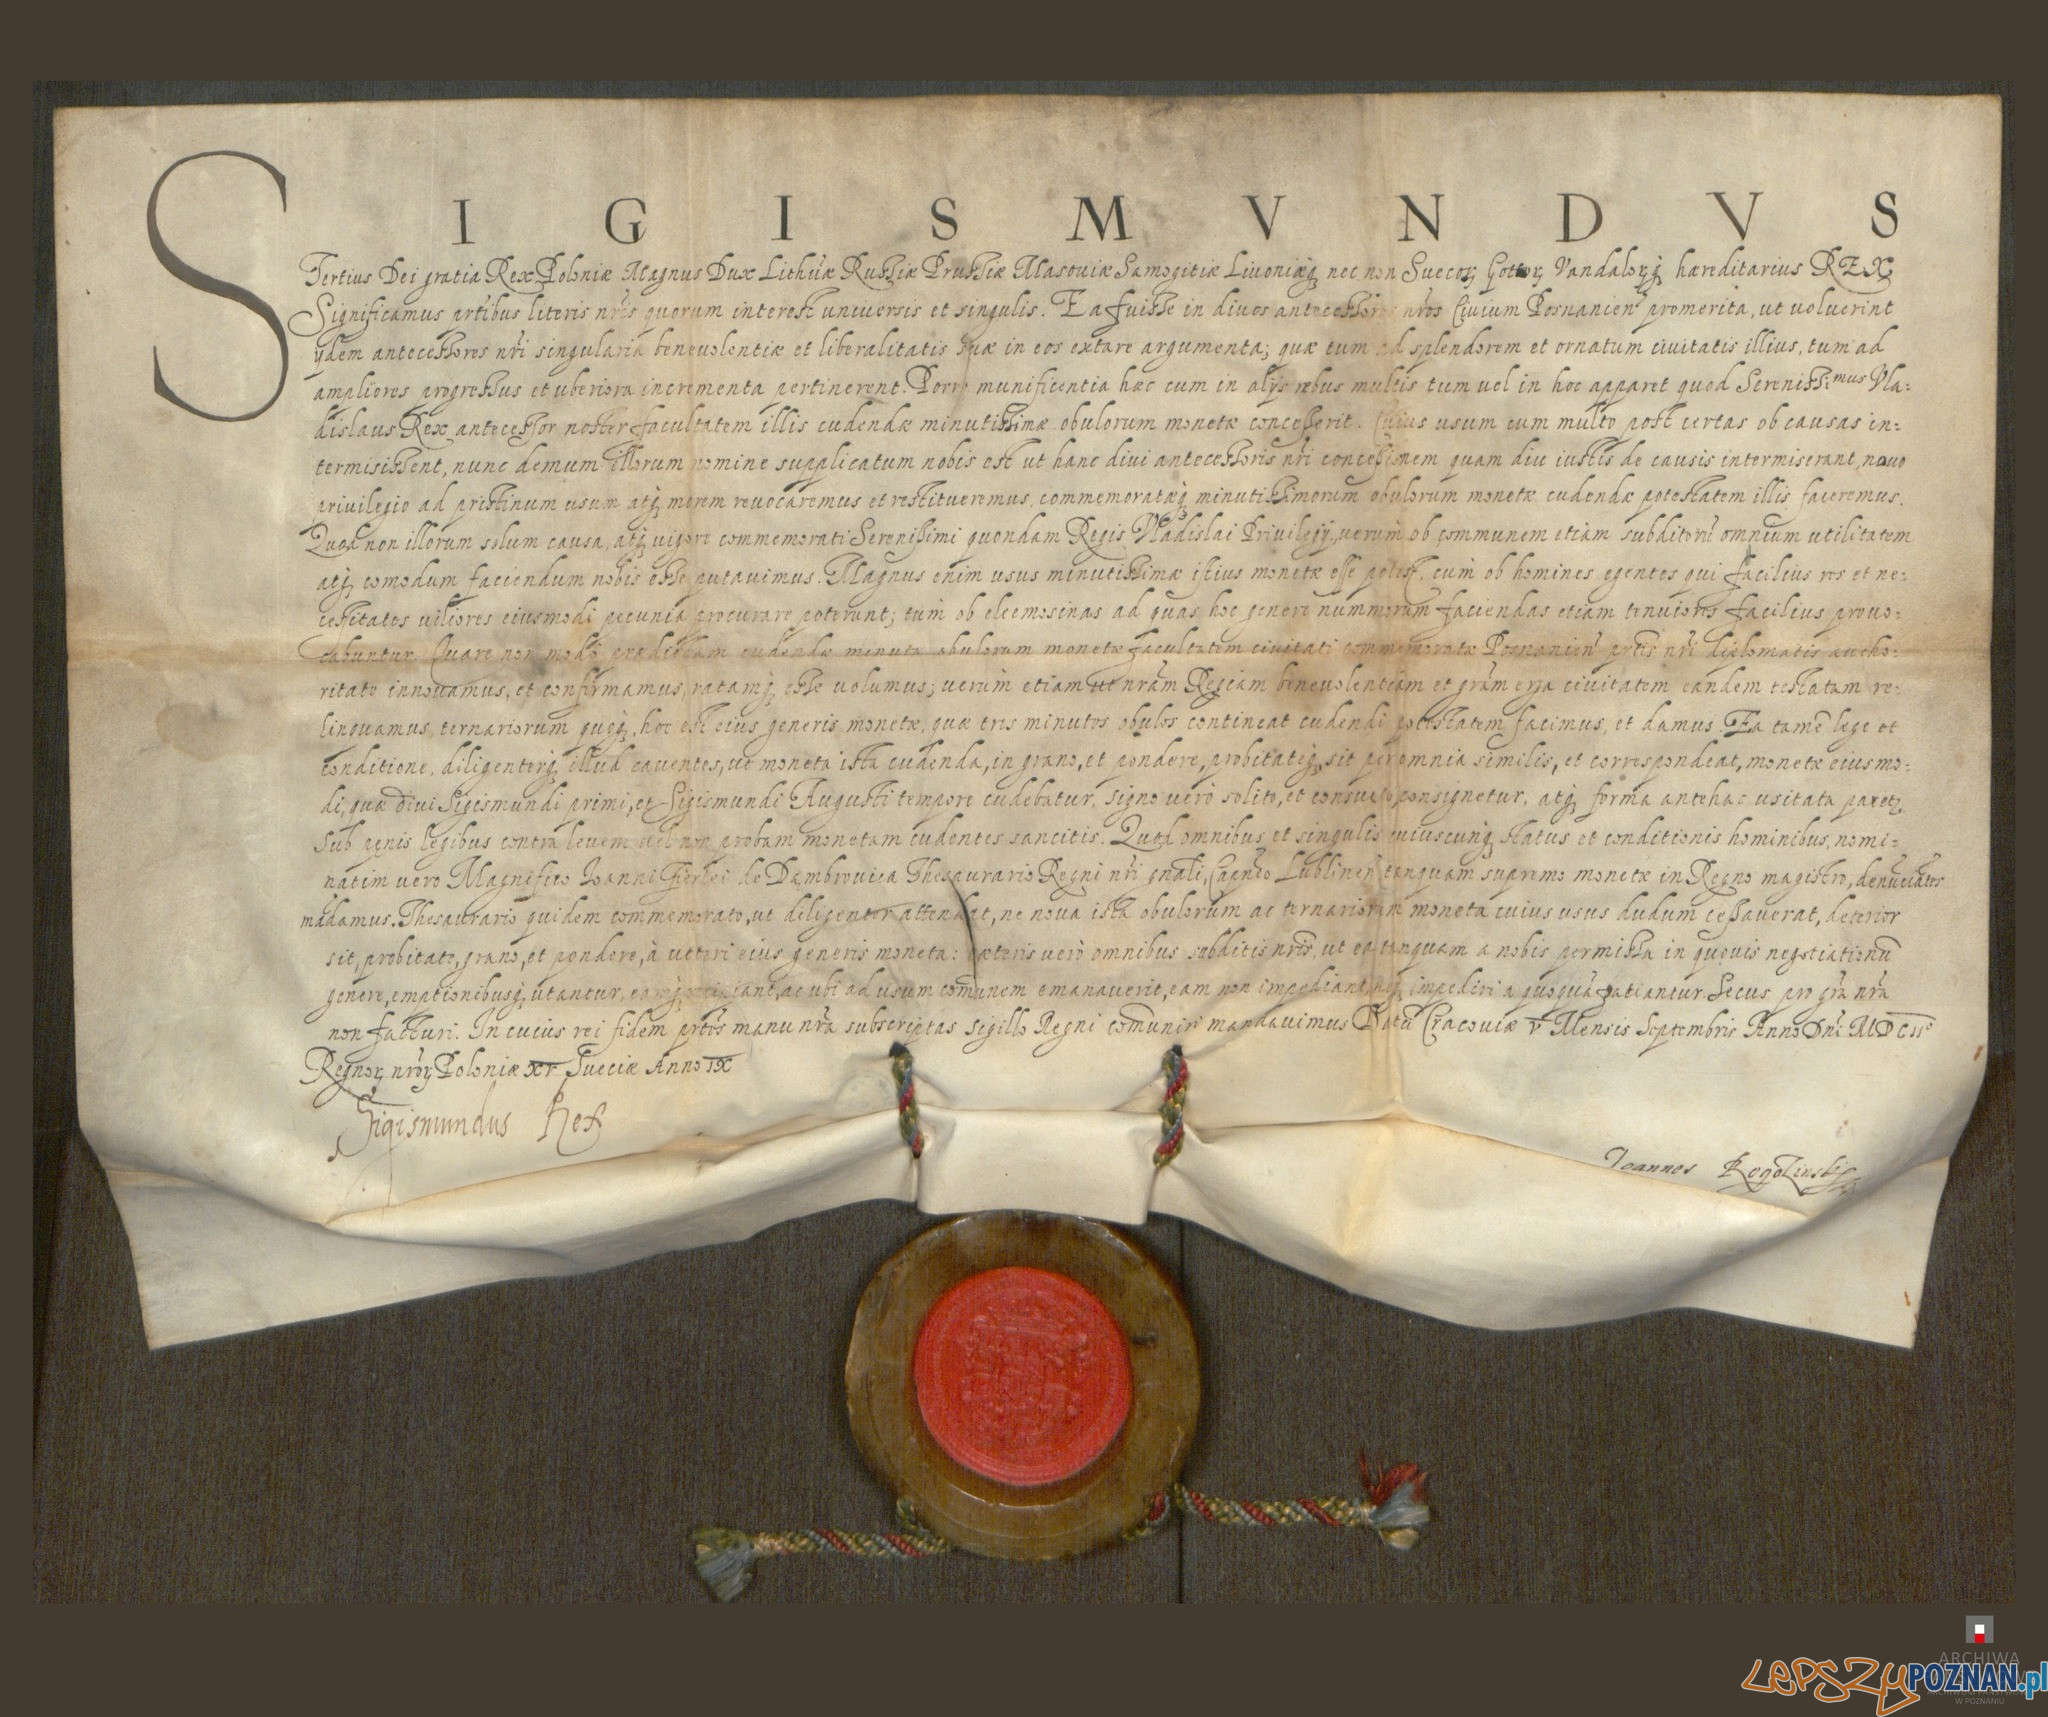 SIGISMVNDVS
Tertius Dei gratia Rex Poloniæ Magnus Dux Lithũæ Russiæ Prussiæ Masouiæ Samogitiæ Liuoniæq; nec non Suecoꝝ Gottoꝝ Vandaloꝝq; hæreditarius REX
Significamus pr̃tibus literis nr̃is quorum interest vniuersis et singulis. Ea fuisse in diuos antecessores nr̃os Ciuium Posnanien̄ promerita, ut uoluerint
ijdem antecessores nr̃i singularia beneuolentiæ et liberalitatis suæ in eos extare argumenta; quæ tum ad splendorem et ornatum ciuitatis illius, tum ad
ampliores progressus et vberiora incrementa pertinerent. Porro munificentia hæc cum in alijs rebus multis tum uel in hoc apparet quod Sereniss:mus Vla-
dislaus Rex antecessor noster facultatem illis cudendæ minutissimæ obulorum monetæ concesserit. Cuius usum cum multo post certas ob causas in-
termisissent, nunc demum illorum nomine supplicatum nobis est ut hanc diui antecessoris nr̃i concessionem quam diu iustis de causis intermiserant, nouo
priuilegio ad pristinum usum atq; morem reuocaremus et restitueremus, commemoratæq; minutissimorum obulorum monetæ cudendæ potestatem illis faceremus.
Quod non illorum solum causa, atq; uigore commemorati Serenissimi quondam Regis Vladislai Priuilegij, uerum ob communem etiam subditorũ omnium utilitatem
atq; comodum faciendum nobis esse putauimus. Magnus enim usus minutissimæ istius monetæ esse potest, cum ob homines egentes qui facilius res et ne-
cessitates uiliores eiusmodi pecunia procurare poterunt; tum ob eleemosinas ad quas hoc genere nummorum faciendas etiam tenuiores facilius prouo-
cabuntur. Quare non modo prædictam cudendæ minutæ obulorum monetæ facultatem ciuitati commemoratæ Posnanien̄ pr̃tis nr̃i diplomatis autho-
ritate innouamus, et confirmamus, ratamq; esse uolumus; uerum etiam ut nr̃am Regiam beneuolentiam et gr̃am erga ciuitatem eandem testatam re-
linquamus, ternariorum quoq;, hoc est eius generis monetæ, quæ tres minutos obulos contineat cudendi potestatem facimus, et damus. Ea tamē lege et
conditione, diligenterq; illud cauentes, ut moneta ista cudenda, in grano, et pondere, probitateq; sit per omnia similis, et correspondeat, monetæ eiusmo-
di, quæ Diui Sigismundi primi, et Sigismundi Augusti tempore cudebatur, signo uerò solito, et consueto consignetur, atq; forma antehac usitata paretꝛ
Sub pœnis legibus contra leuem uel non probam monetam cudentes sancitis. Quod omnibus et singulis cuiuscunq; status et conditionis hominibus, nomi-
natim uero Magnifico Ioanni Firlei de Dambrouica Thesaurario Regni nr̃i gnāli, Capnēo Lublinen̄ tanquam supremo monetæ in Regno magistro, denūciātes
mādamus. Thesaurario quidem commemorato, ut diligenter attendat, ne noua ista obulorum ac ternariorum moneta cuius usus dudum cessauerat, deterior
sit, probitate, grano, et pondere, à ueteri eius generis moneta: cæteris uerò omnibus subditis nr̃is, ut ea tanquam a nobis permissa in quouis negotiationū
genere, emationibusq; utantur, eamq; recipiant, ac ubi ad usum comunem emanauerit, eam non impediant neq; impediri a quoquā patiantur. Secus pro gr̃a nr̃a
non facturi. In cuius rei fidem pr̃tes manu nr̃a subscriptas sigillo Regni comuniri mandauimus Datū Cracouiæ V Mensis Septembris Anno Dni MDCII
Regnoꝝ nr̃oꝝ Poloniæ XV Sueciæ Anno IX
Sigismundus Rex
Joannes
ARCHIWA
W POZNANIU
LEPSZYPOZNAN.pl